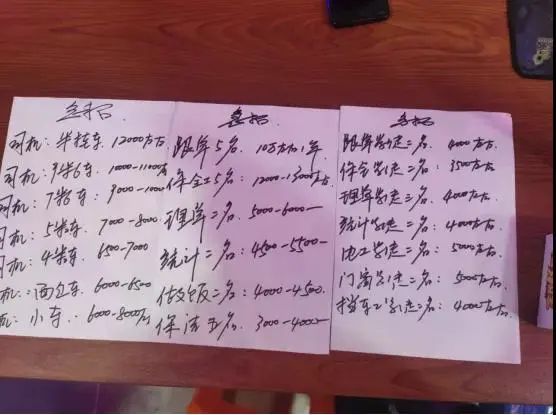 急招
司机: 半挂车 12000左右
司机: 9米6车 1000-1100左
司机: 7米车 9000-1000
司机: 5米车 7000-8000
司机: 4米车 6500-7000
机: 面包车 6000-6500
机: 小车: 6000-8000左
急招
跟单5名 10万左右1年
保全5名: 12000-13000左右
理单二名: 5000-6000
统计二名: 4500-5500
做饭二名: 4000-4500
保洁五名: 3000-4000
急招
跟单学徒二名: 4000左右
保全学徒二名: 3500左右
理单学徒二名: 4000左右
统计学徒二名: 4000左右
电工学徒二名: 5000左右
门窗学徒二名: 5000左右
挡车工学徒二名: 4000左右